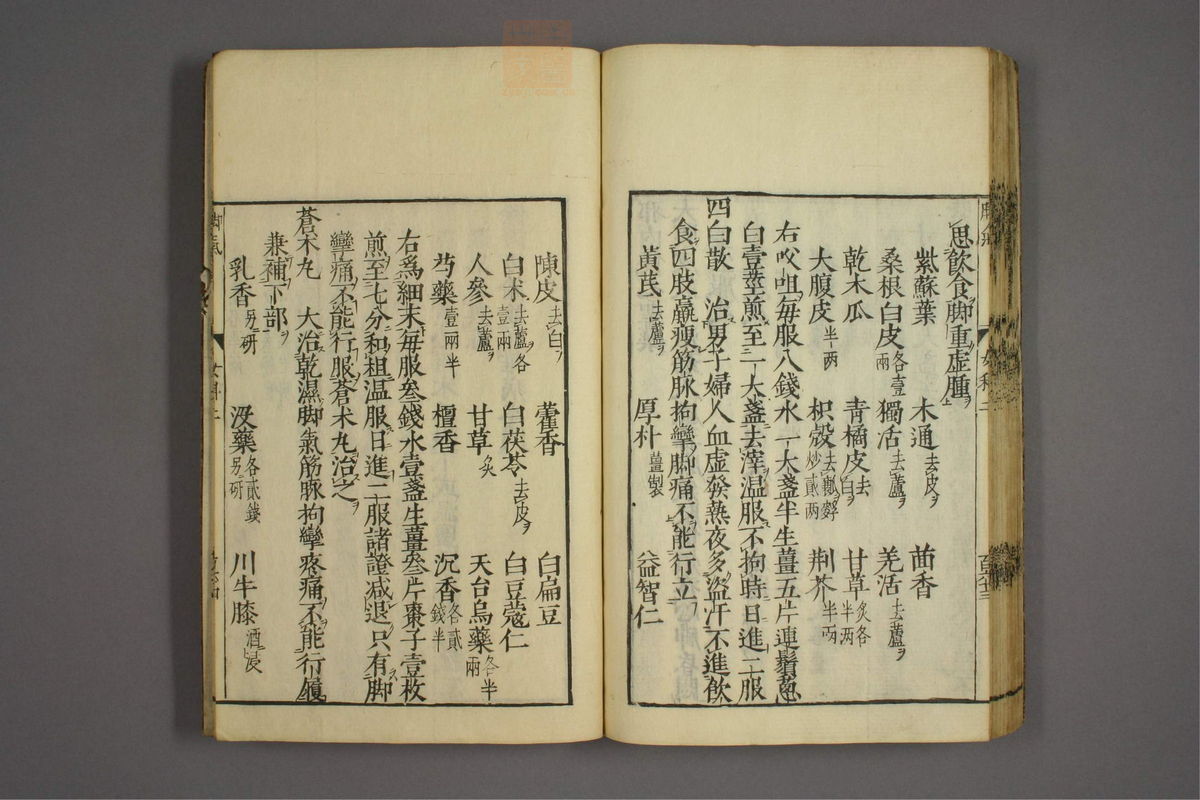 思飲食脚重虚腫
紫蘇葉 木通去皮 茴香
桑根白皮各壹兩 獨活去蘆 羌活去蘆
乾木瓜 青橘皮去白 甘草炙各半两
大腹皮半两 枳殻去瓤麸炒貳两 荆芥半两
右㕮咀每服八錢水一大盞半生薑五片連鬚葱
白壹莖煎至一大盞去滓温服不拘時日進二服
四白散 治男子婦人血虚發熱夜多盗汗不進飲
食四肢羸瘦筋脉拘攣脚痛不能行立
黄芪去蘆 厚朴薑製 益智仁
陳皮去白 藿香 白扁豆
白术去蘆各壹兩 白茯苓去皮 白豆蔻仁
人參去蘆 甘草炙 天台烏藥各半兩
芍藥壹兩半 檀香 沉香各貳錢半
右爲細末每服叁錢水壹盞生薑叁片棗子壹枚
煎至七分和柤温服日進二服諸證减退只有脚
攣痛不能行服蒼术丸治之
蒼术丸 大治乾濕脚氣筋脉拘攣疼痛不能行履
兼補下部
乳香另研 沒藥各貳錢另研 川牛膝酒浸